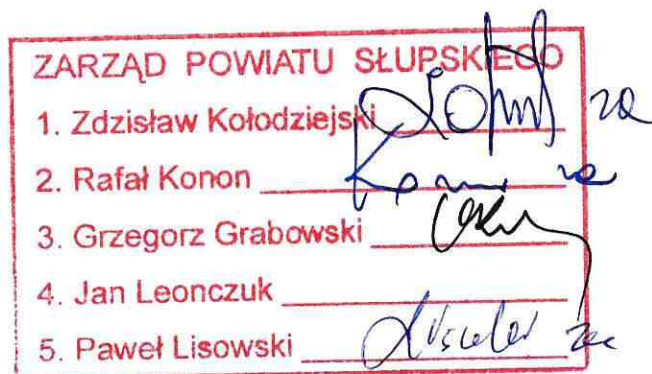 ZARZĄD POWIATU SŁUPSKIEGO
1. Zdzisław Kołodziejski za
2. Rafał Konon za
3. Grzegorz Grabowski
4. Jan Leonczuk
5. Paweł Lisowski za